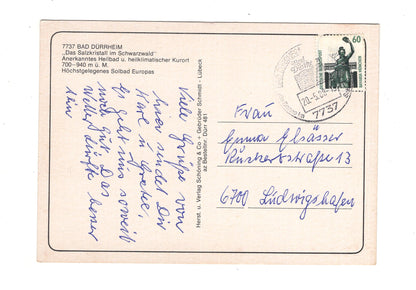 7737 BAD DÜRRHEIM
„Das Salzkristall im Schwarzwald"
Anerkanntes Heilbad u. heilklimatischer Kurort
700–940 m ü. M.
Höchstgelegenes Solbad Europas
Viele Grüße von
hier sendet Dir
Karl u. Gretel.
Es geht uns soweit
noch gut. Das
Wetter dürfte besser
sein
Herst. u. Verlag Schöning & Co + Gebrüder Schmidt · Lübeck
az Bestellnr. Dürr 481
60
7737
Frau
Emma Elsässer
Rückertstraße 13
6700 Ludwigshafen